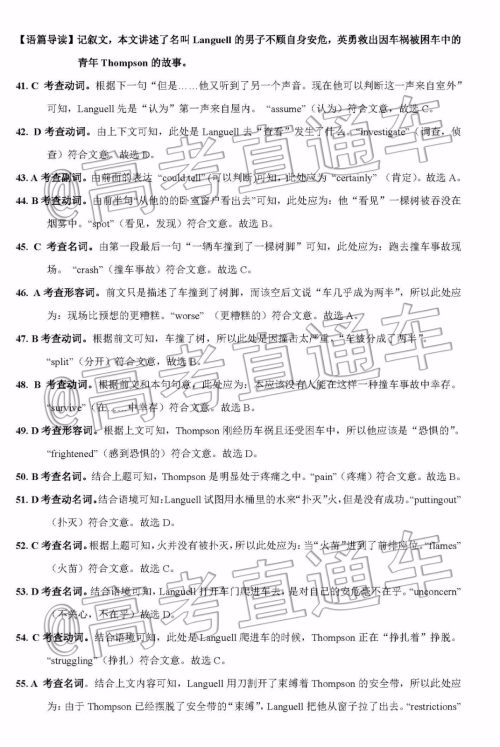 【语篇导读】记叙文，本文讲述了名叫 Languell 的男子不顾自身安危，英勇救出因车祸被困车中的
青年 Thompson 的故事。
41. C 考查动词。根据下一句“但是……他又听到了另一个声音。现在他可以判断这一声来自室外”
可知，Languell 先是“认为”第一声来自屋内。 “assume”（认为）符合文意，故选 C。
42. D 考查动词。由上下文可知，此处是 Languell 去“查看”发生了什么。“investigate”（调查，侦
查）符合文意。故选 D。
43. A 考查副词。由前面的表达 “could tell”(可以判断)可知，此处应为 “certainly” （肯定）。故选 A。
44. B 考查动词。由前半句“从他的的卧室窗户看出去”可知，此处应为：他“看见”一棵树被吞没在
烟雾中。“spot”（看见，发现）符合文意。故选 B。
45. C 考查名词。由第一段最后一句“一辆车撞到了一棵树脚”可知，此处应为：跑去撞车事故现
场。 “crash”（撞车事故）符合文意。故选 C。
46. A 考查形容词。前文只是描述了车撞到了树脚，而该空后文说“车几乎成为两半”，所以此处应
为：现场比预想的更糟糕。“worse” （更糟糕的）符合文意。故选 A。
47. B 考查动词。根据前文可知，车撞了树，所以此处是因撞击太严重，“车被分成了两半”。
“split”（分开）符合文意，故选 B。
48. B 考查动词。根据前文和本句句意，此处应为：本应该没有人能在这样一种撞车事故中幸存。
“survive”（在……中幸存）符合文意。故选 B。
49. D 考查形容词。根据上文可知，Thompson 刚经历车祸且还受困车中，所以他应该是“恐惧的”。
“frightened”（感到恐惧的）符合文意。故选 D。
50. B 考查名词。结合上题可知，Thompson 是明显处于疼痛之中。“pain”（疼痛）符合文意。故选 B。
51. D 考查动名词。结合语境可知：Languell 试图用水桶里的水来“扑灭”火，但是没有成功。“puttingout”
（扑灭）符合文意。故选 D。
52. C 考查名词。根据上题可知，火并没有被扑灭，所以此处应为：当“火苗”进到了前排座位。“flames”
（火苗）符合文意。故选 C。
53. D 考查名词。结合语境可知：Languell 打开车门爬进车去，是对自己的安危毫不在乎。“unconcern”
（不关心，不在乎）故选 D。
54. C 考查动名词。结合语境可知，此处是 Languell 爬进车的时候，Thompson 正在“挣扎着”挣脱。
“struggling”（挣扎）符合文意。故选 C。
55. A 考查名词。结合上文内容可知，Languell 用刀割开了束缚着 Thompson 的安全带，所以此处应
为：由于 Thompson 已经摆脱了安全带的“束缚”，Languell 把他从窗子拉了出去。“restrictions”
@高考直通车
@高考直通车
@高考直通车